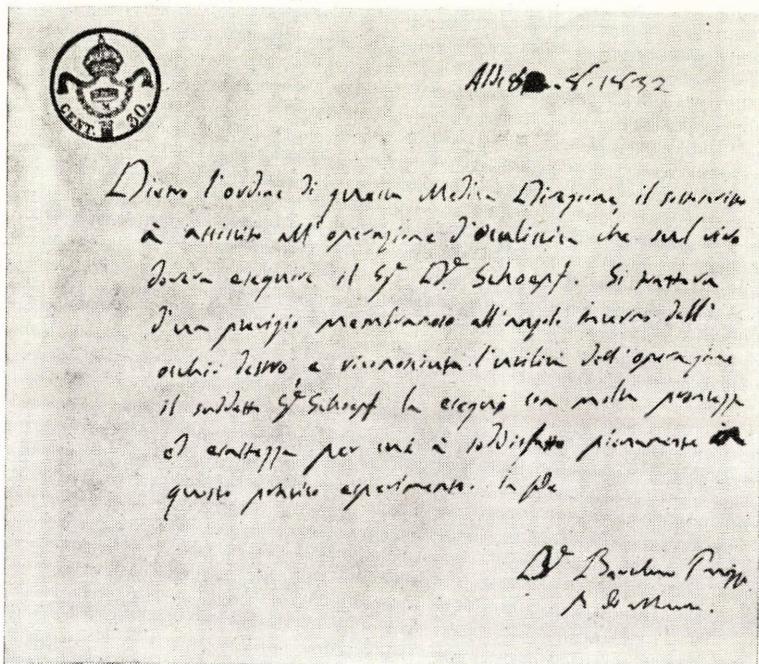 CENT. 30.
8. 1832
Dietro l'ordine di questa Medica Direzione, il sottoscritto
à assistito all'operazione d'oculistica che sul vivo
doveva eseguire il Sr. Dr. Schoepf. Si trattava
d'un pterigio membranoso all'angolo interno dell'
occhio destro, e riconosciuta l'utilità dell'operazione
il suddetto Sr. Schoepf la eseguì con molta prontezza
ed esattezza per cui à soddisfatto pienamente in
questo pratico esperimento. In fede
Dr.